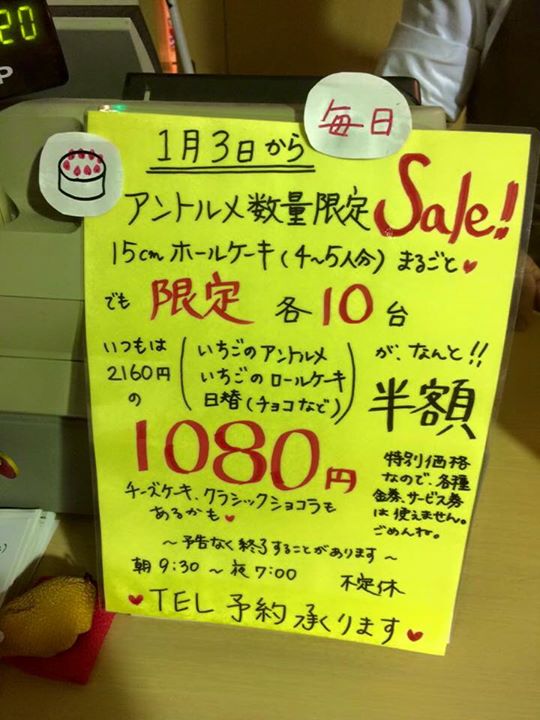 20
P
毎日
1月3日から
アントルメ数量限定 Sale!!
15cmホールケーキ(4〜5人分)まるごと♥
でも 限定 各10台
いつもは
2160円
の
いちごのアントルメ
いちごのロールケーキ
日替(チョコなど)
が、なんと!!
半額
1080円
特別価格
なので、各種
金券、サービス券
は使えません。
ごめんね。
チーズケーキ、クラシックショコラも
あるかも♥
〜予告なく終了することがあります〜
朝9:30〜夜7:00 不定休
♥TEL予約承ります♥